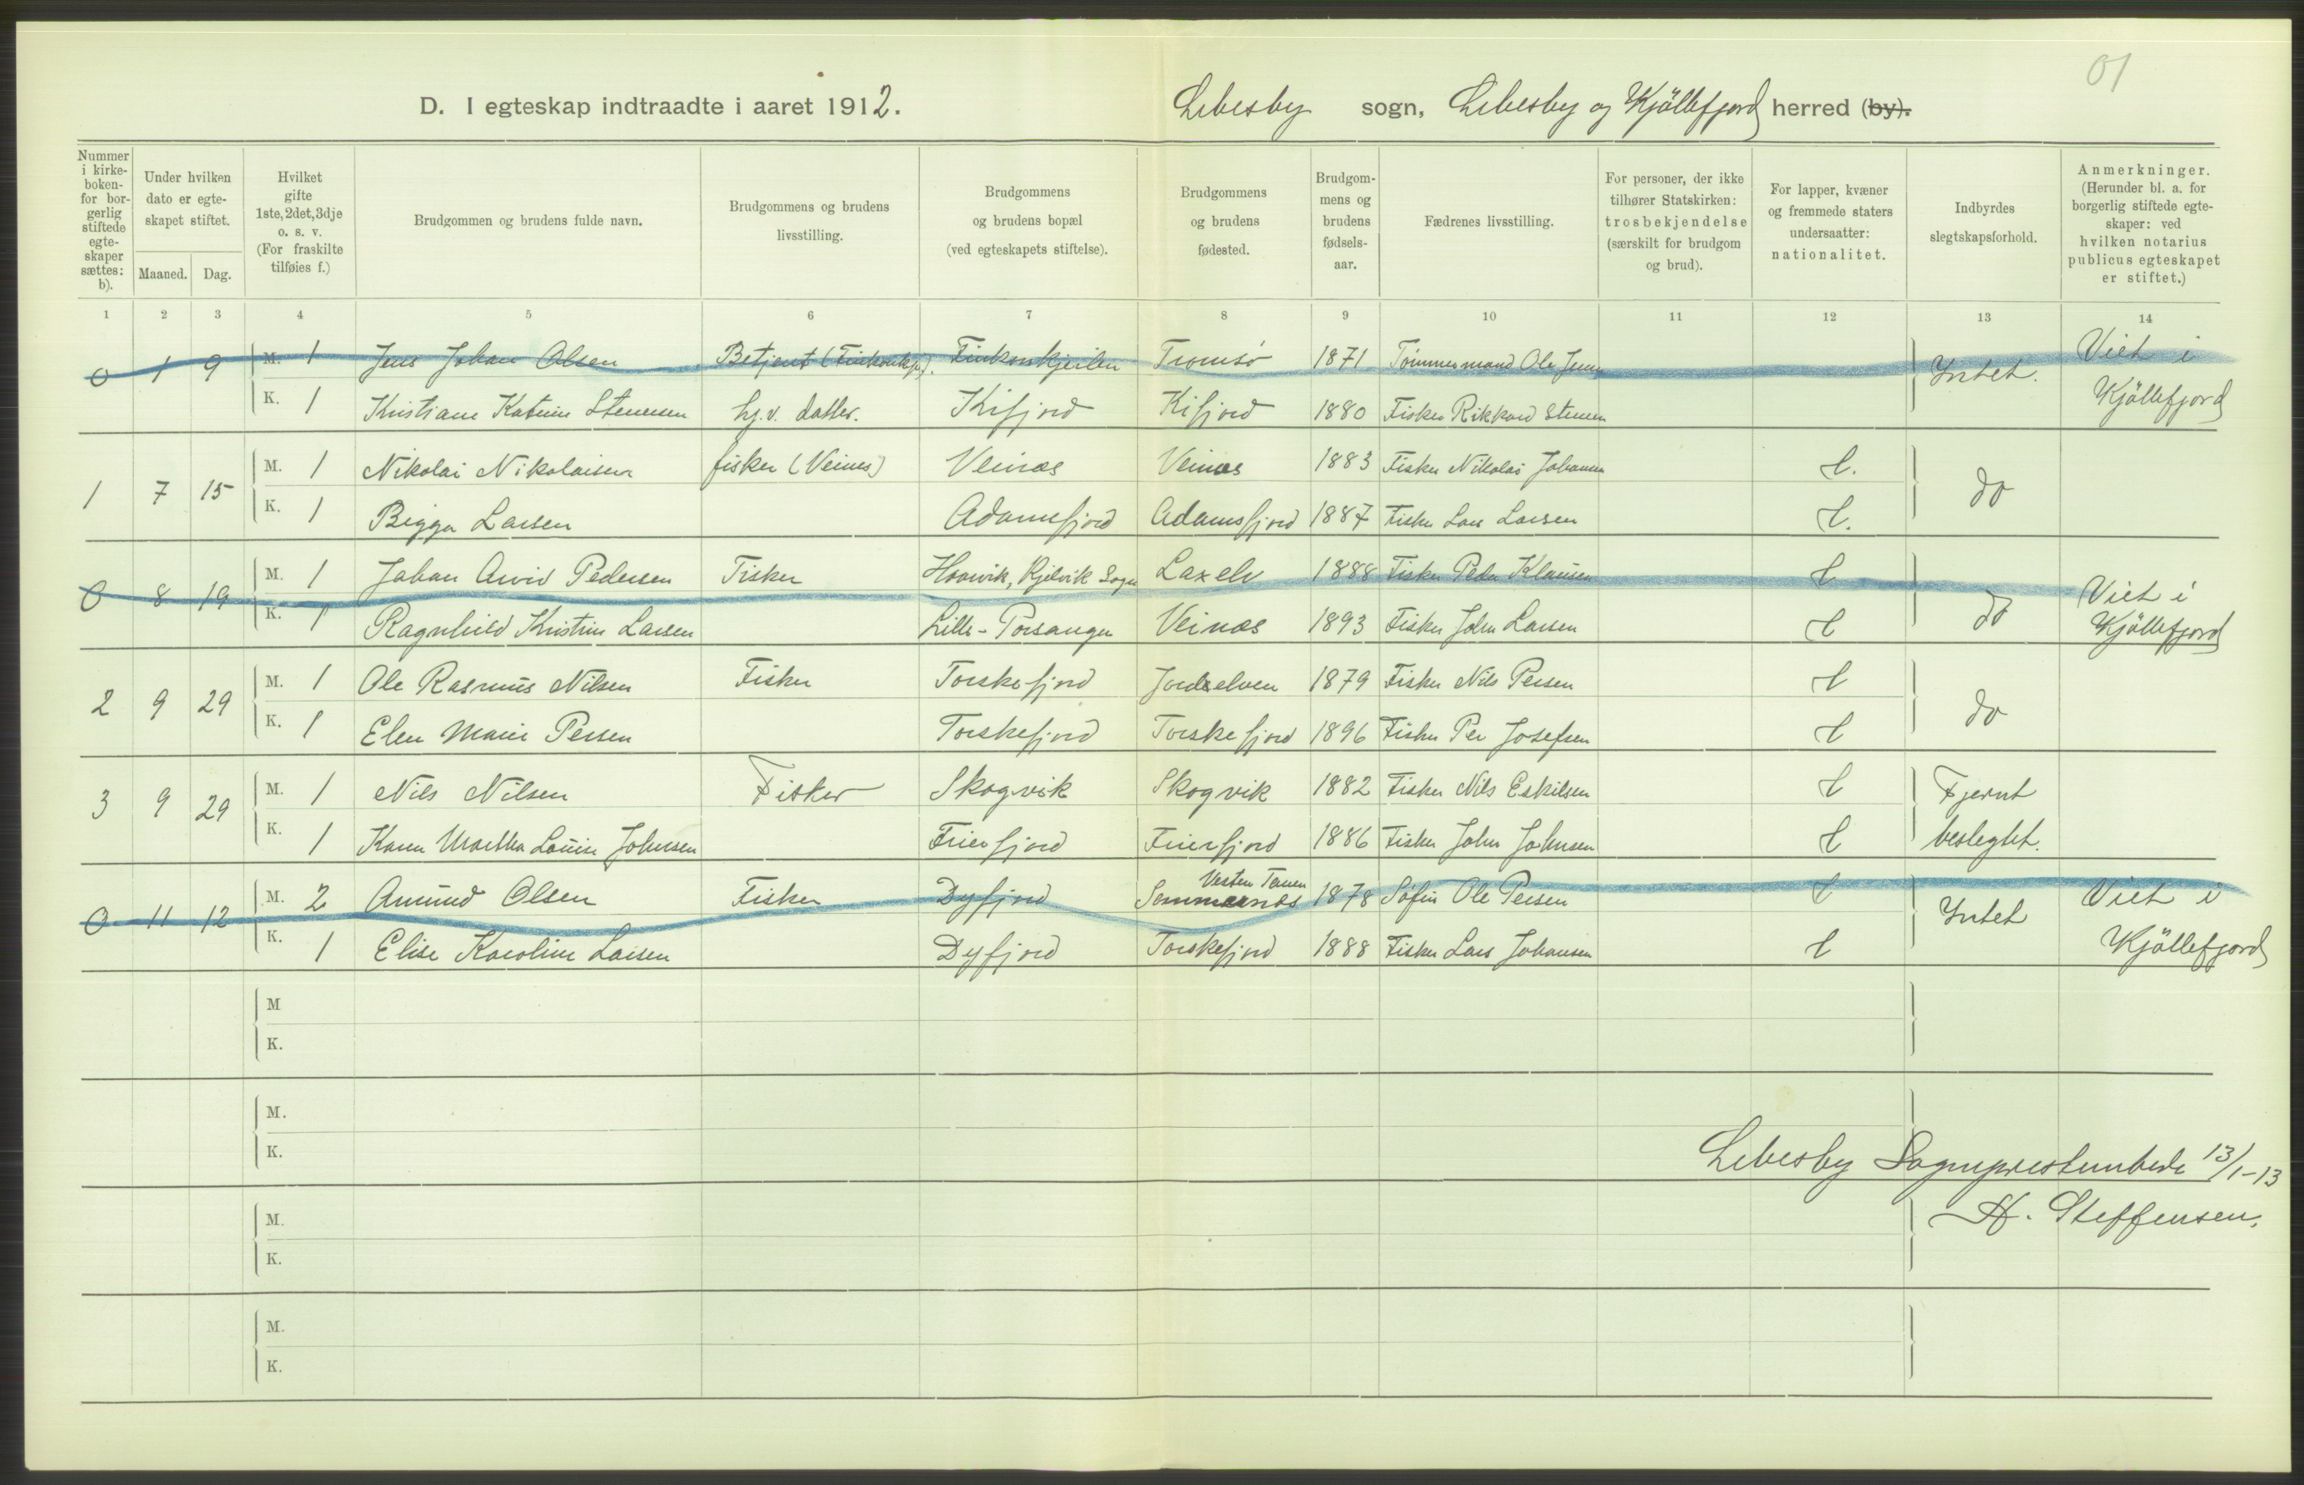 01
D. I egteskap indtraadte i aaret 1912. Lebesby sogn, Lebesby og Kjöllefjord herred (by).
Nummer i kirkeboken- for borgerlig stiftede egteskaper sættes: b).
Under hvilken dato er egteskapet stiftet.
Maaned. Dag.
Hvilket gifte 1ste, 2det, 3dje o. s. v. (For fraskilte tilføies f.)
Brudgommen og brudens fulde navn.
Brudgommens og brudens livsstilling.
Brudgommens og brudens bopæl (ved egteskapets stiftelse).
Brudgommens og brudens fødested.
Brudgommens og brudens fødselsaar.
Fædrenes livsstilling.
For personer, der ikke tilhører Statskirken: trosbekjendelse (særskilt for brudgom og brud).
For lapper, kvæner og fremmede staters undersaatter: nationalitet.
Indbyrdes slegtskapsforhold.
Anmerkninger. (Herunder bl. a. for borgerlig stiftede egteskaper: ved hvilken notarius publicus egteskapet er stiftet.)
1 2 3 4 5 6 7 8 9 10 11 12 13 14
0 1 9 M. 1 Jens Johan Olsen Betjent (Finkonkj.). Finkonkjeilen Tromsö 1871 Tömmermand Ole Jens Intet. Viet i
K. 1 Kristiane Katrine Stenersen hj.v. datter. Kifjord Kifjord 1880 Fisker Rikkard Stenersen Kjöllefjord
1 7 15 M. 1 Nikolai Nikolaisen fisker (Veines) Veines Veines 1883 Fisker Nikolai Johansen L. do
K. 1 Bigga Larsen Adamsfjord Adamsfjord 1887 Fisker Lars Larsen L.
0 8 19 M. 1 Johan Arvid Pedersen Fisker Honvik, Kjelvik Sogn Laxelv 1888 Fisker Peder Klausen L do Viet i
K. 1 Ragnhild Kristine Larsen Lille-Porsanger Veines 1893 Fisker John Larsen L Kjöllefjord
2 9 29 M. 1 Ole Rasmus Nilsen Fisker Torskefjord 1879 Fisker Nils Persen L do
K. 1 Elen Marie Persen Torskefjord Torskefjord 1896 Fisker Per Josefsen L
3 9 29 M. 1 Nils Nilsen Fisker Skogvik Skogvik 1882 Fisker Nils Eskilsen L Fjernt
K. 1 Karen Martha Louise Johnsen Frierfjord Frierfjord 1886 Fisker John Johnsen L beslegtet.
0 11 12 M. 2 Amund Olsen Fisker Dyfjord Vesten Tanen Sommernes 1878 Söfin Ole Persen L Intet Viet i
K. 1 Elise Karoline Larsen Dyfjord Torskefjord 1888 Fisker Lars Johansen L Kjöllefjord
M
K.
M.
K.
Lebesby Sogneprestembede 13/1-13
M.
H. Steffensen.
K.
M.
K.